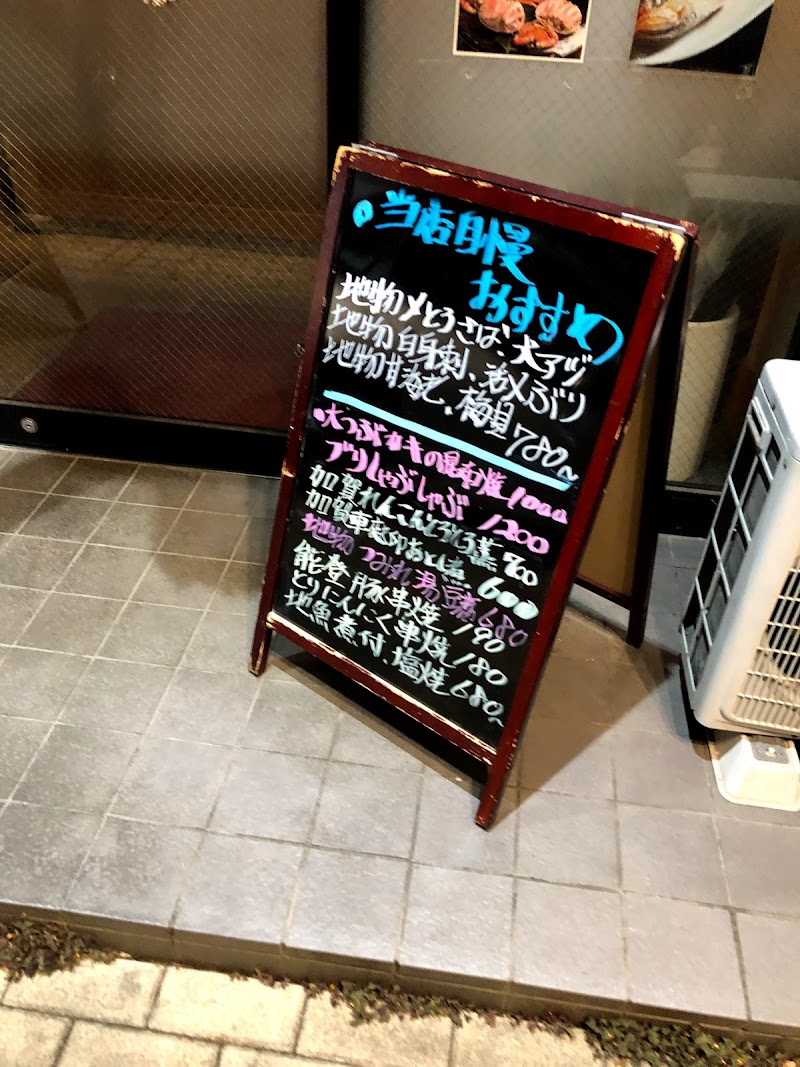 当店自慢
おすすめ
地物〆とろさば、大アヅ
地物白身刺、活〆ぶり
地物甘海老、梅貝780~
大つぶカキの昆布焼1000
ブリしゃぶしゃぶ1200
加賀れんこんとろろ蒸700
加賀車麩卵おとし煮600
地物つみれ湯豆腐680
能登豚串焼190
とりにんにく串焼180
地魚煮付、塩焼680~